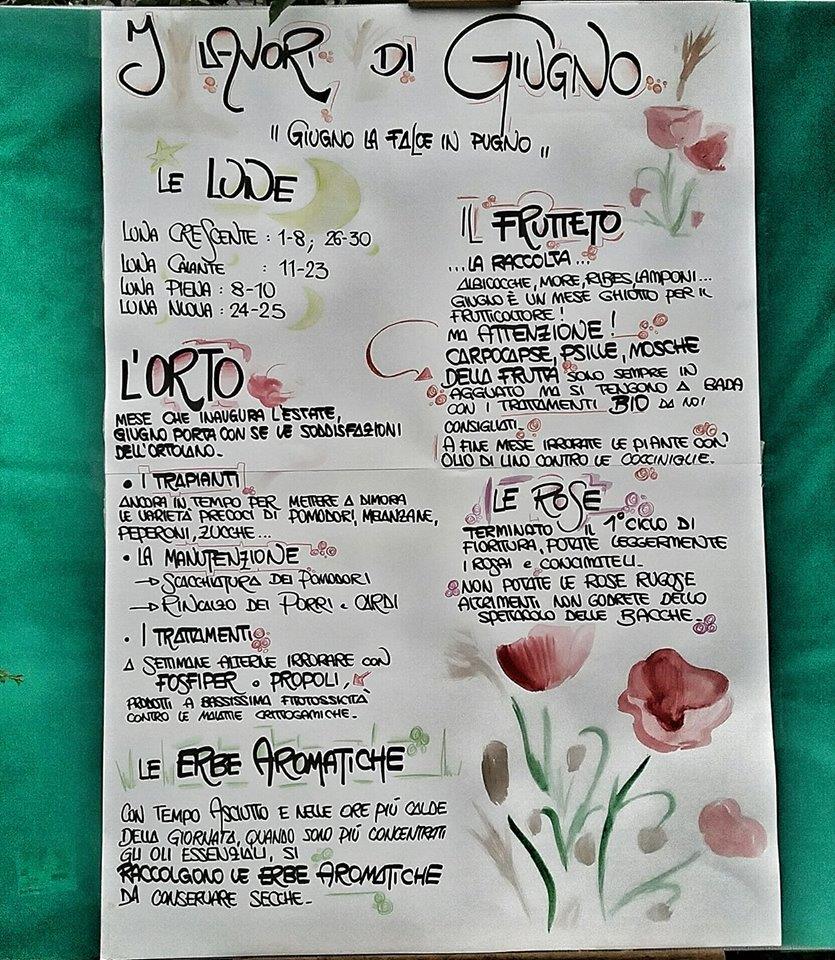 I LAVORI DI GIUGNO
"GIUGNO LA FALCE IN PUGNO"
LE LUNE
LUNA CRESCENTE : 1-8; 26-30
LUNA CALANTE : 11-23
LUNA PIENA : 8-10
LUNA NUOVA : 24-25
L'ORTO
MESE CHE INAUGURA L'ESTATE,
GIUGNO PORTA CON SE LE SODDISFAZIONI
DELL'ORTOLANO.
• I TRAPIANTI
ANCORA IN TEMPO PER METTERE A DIMORA
LE VARIETÀ PRECOCI DI POMODORI, MELANZANE,
PEPERONI, ZUCCHE...
• LA MANUTENZIONE
→ SCACCHIATURA DEI POMODORI
→ RINCALZO DEI PORRI e CARDI
• I TRATTAMENTI
A SETTIMANE ALTERNE IRRORARE CON
FOSFIPER o PROPOLI,
PRODOTTI A BASSISSIMA FITOTOSSICITÀ
CONTRO LE MALATTIE CRITTOGAMICHE.
LE ERBE AROMATICHE
CON TEMPO ASCIUTTO E NELLE ORE PIÚ CALDE
DELLA GIORNATA, QUANDO SONO PIÚ CONCENTRATI
GLI OLI ESSENZIALI, SI
RACCOLGONO LE ERBE AROMATICHE
DA CONSERVARE SECCHE.
IL FRUTTETO
...LA RACCOLTA...
ALBICOCCHE, MORE, RIBES, LAMPONI...
GIUGNO È UN MESE GHIOTTO PER IL
FRUTTICOLTORE!
MA ATTENZIONE!
CARPOCAPSE, PSILLE, MOSCHE
DELLA FRUTTA SONO SEMPRE IN
AGGUATO MA SI TENGONO A BADA
CON I TRATTAMENTI BIO DA NOI
CONSIGLIATI.
A FINE MESE IRRORATE LE PIANTE CON
OLIO DI LINO CONTRO LE COCCINIGLIE.
LE ROSE
TERMINATO IL 1° CICLO DI
FIORITURA, POTATE LEGGERMENTE
I ROSAI e CONCIMATELI.
NON POTATE LE ROSE RUGOSE
ALTRIMENTI NON GODRETE DELLO
SPETTACOLO DELLE BACCHE.